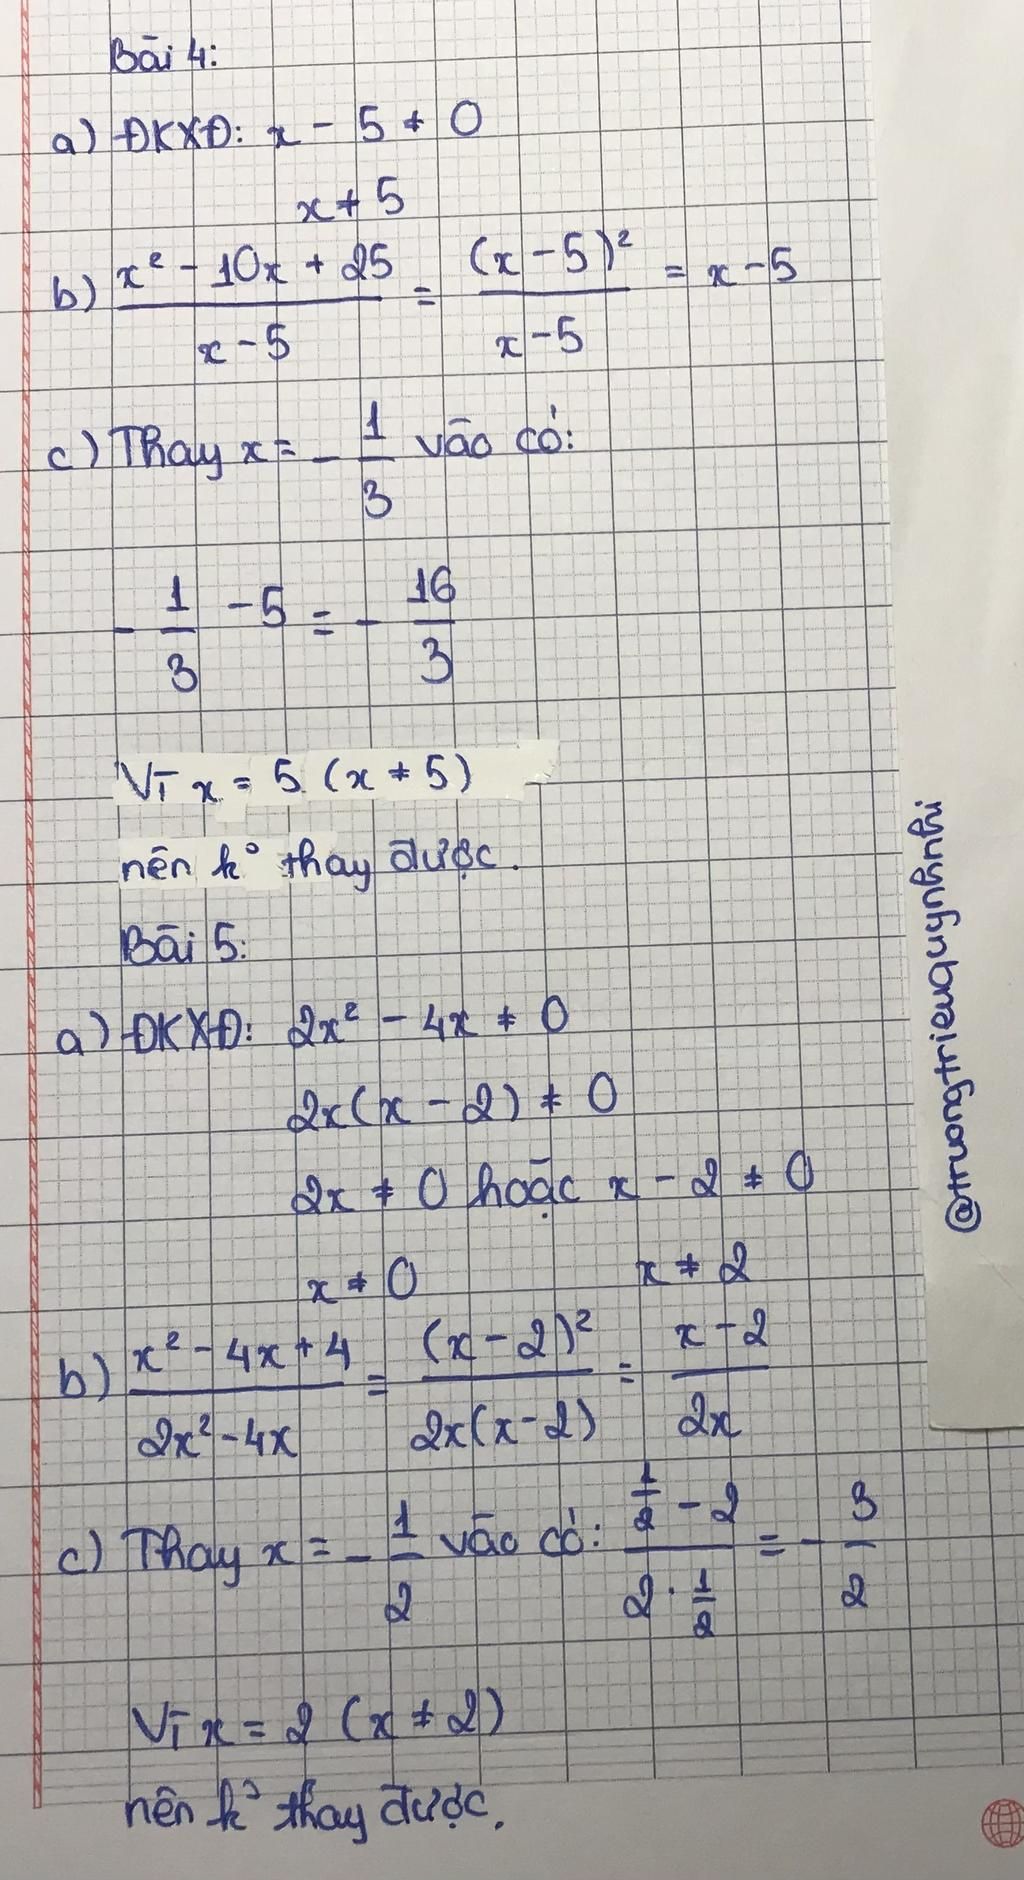 Bài 4:
a) ĐKXĐ: x - 5 ≠ 0
x ≠ 5
b) (x² - 10x + 25)/(x - 5) = (x - 5)²/(x - 5) = x - 5
c) Thay x = - 1/3 vào có:
- 1/3 - 5 = - 16/3
Vì x = 5 (x ≠ 5)
nên k° thay được.
Bài 5:
a) ĐKXĐ: 2x² - 4x ≠ 0
2x(x - 2) ≠ 0
2x ≠ 0 hoặc x - 2 ≠ 0
x ≠ 0 x ≠ 2
b) (x² - 4x + 4)/(2x² - 4x) = (x - 2)²/(2x(x - 2)) = (x - 2)/(2x)
c) Thay x = - 1/2 vào có: (1/2 - 2)/(2 · 1/2) = - 3/2
Vì x = 2 (x ≠ 2)
nên k° thay được.
@truongtrieuquynhnhi